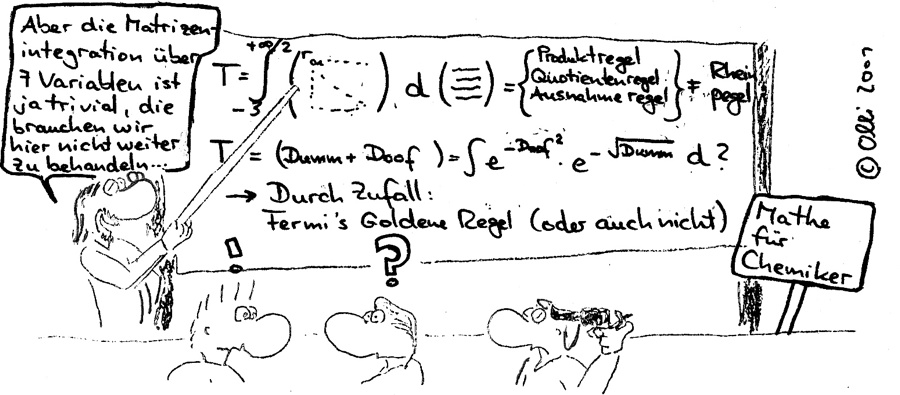 Aber die Matrizen-
integration über
7 Variablen ist
ja trivial, die
brauchen wir
hier nicht weiter
zu behandeln...
T = ∫ +∞/2 -3 (r ) . d (≡) = { Produktregel Quotientenregel Ausnahmeregel } ≠ Rhein pegel
T = (Dumm + Doof ) = ∫ e^-Doof² · e^-√Dumm d ?
→ Durch Zufall:
Fermi's Goldene Regel (oder auch nicht)
! ?
Mathe
für
Chemiker
© Olli 2001